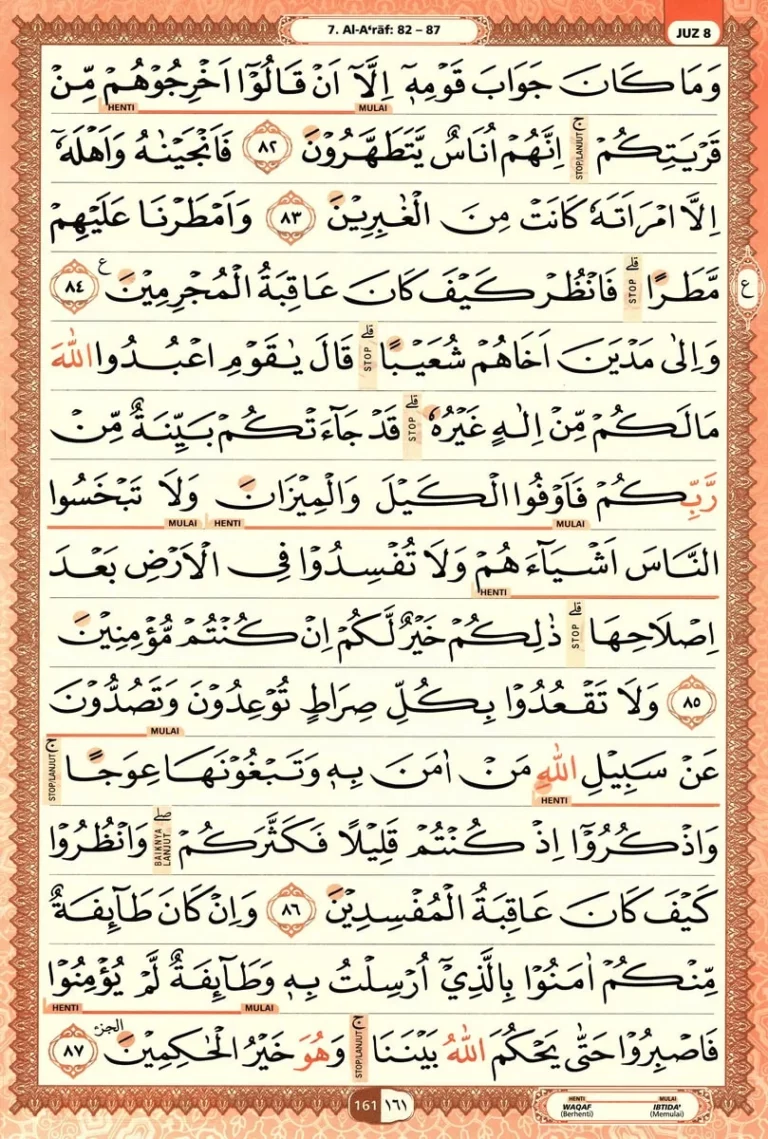 7. Al-A‘rāf: 82 – 87
JUZ 8
وَمَا كَانَ جَوَابَ قَوْمِهٖٓ اِلَّآ اَنْ قَالُوْٓا اَخْرِجُوْهُمْ مِّنْ
HENTI MULAI
قَرْيَتِكُمْۚ اِنَّهُمْ اُنَاسٌ يَّتَطَهَّرُوْنَ ٨٢ فَاَنْجَيْنٰهُ وَاَهْلَهٗٓ
STOP/LANJUT
اِلَّا امْرَاَتَهٗ كَانَتْ مِنَ الْغٰبِرِيْنَ ٨٣ وَاَمْطَرْنَا عَلَيْهِمْ
مَّطَرًاۗ فَانْظُرْ كَيْفَ كَانَ عَاقِبَةُ الْمُجْرِمِيْنَ ࣖ ٨٤
STOP
ع
وَاِلٰى مَدْيَنَ اَخَاهُمْ شُعَيْبًاۗ قَالَ يٰقَوْمِ اعْبُدُوا اللّٰهَ
STOP
مَا لَكُمْ مِّنْ اِلٰهٍ غَيْرُهٗۗ قَدْ جَاۤءَتْكُمْ بَيِّنَةٌ مِّنْ
STOP
رَّبِّكُمْ فَاَوْفُوا الْكَيْلَ وَالْمِيْزَانَ وَلَا تَبْخَسُوا
MULAI HENTI MULAI
النَّاسَ اَشْيَاۤءَهُمْ وَلَا تُفْسِدُوْا فِى الْاَرْضِ بَعْدَ
HENTI
اِصْلَاحِهَاۗ ذٰلِكُمْ خَيْرٌ لَّكُمْ اِنْ كُنْتُمْ مُّؤْمِنِيْنَ
STOP
٨٥ وَلَا تَقْعُدُوْا بِكُلِّ صِرَاطٍ تُوْعِدُوْنَ وَتَصُدُّوْنَ
MULAI
عَنْ سَبِيْلِ اللّٰهِ مَنْ اٰمَنَ بِهٖ وَتَبْغُوْنَهَا عِوَجًاۚ
HENTI STOP/LANJUT
وَاذْكُرُوْٓا اِذْ كُنْتُمْ قَلِيْلًا فَكَثَّرَكُمْۖ وَانْظُرُوْا
BAIKNYA LANJUT
كَيْفَ كَانَ عَاقِبَةُ الْمُفْسِدِيْنَ ٨٦ وَاِنْ كَانَ طَاۤىِٕفَةٌ
مِّنْكُمْ اٰمَنُوْا بِالَّذِيْٓ اُرْسِلْتُ بِهٖ وَطَاۤىِٕفَةٌ لَّمْ يُؤْمِنُوْا
HENTI MULAI
فَاصْبِرُوْا حَتّٰى يَحْكُمَ اللّٰهُ بَيْنَنَاۚ وَهُوَ خَيْرُ الْحٰكِمِيْنَ الجزء ٨٧
STOP/LANJUT
161 ١٦١
HENTI MULAI
WAQAF IBTIDA'
(Berhenti) (Memulai)